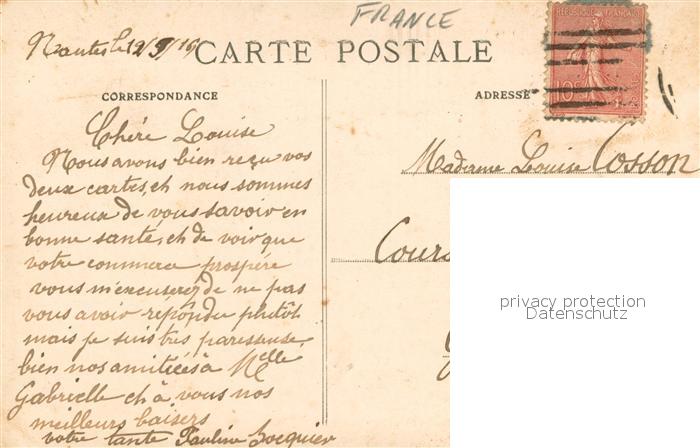 FRANCE
Nantes le 12/9/16
CARTE POSTALE
REPUBLIQUE FRANÇAISE
10c
CORRESPONDANCE
ADRESSE
Chére Louise
Nous avons bien reçu vos
deux cartes, et nous sommes
heureux de vous savoir en
bonne santé, et de voir que
votre commerce prospére
vous m'excuserez de ne pas
vous avoir répondu plutôt
mais je suis très paresseuse
bien nos amitiées à Melle
Gabrielle et à vous nos
meilleurs baisers
votre tante Pauline Locquier
Madame Louise Cosson
Cours
privacy protection
Datenschutz